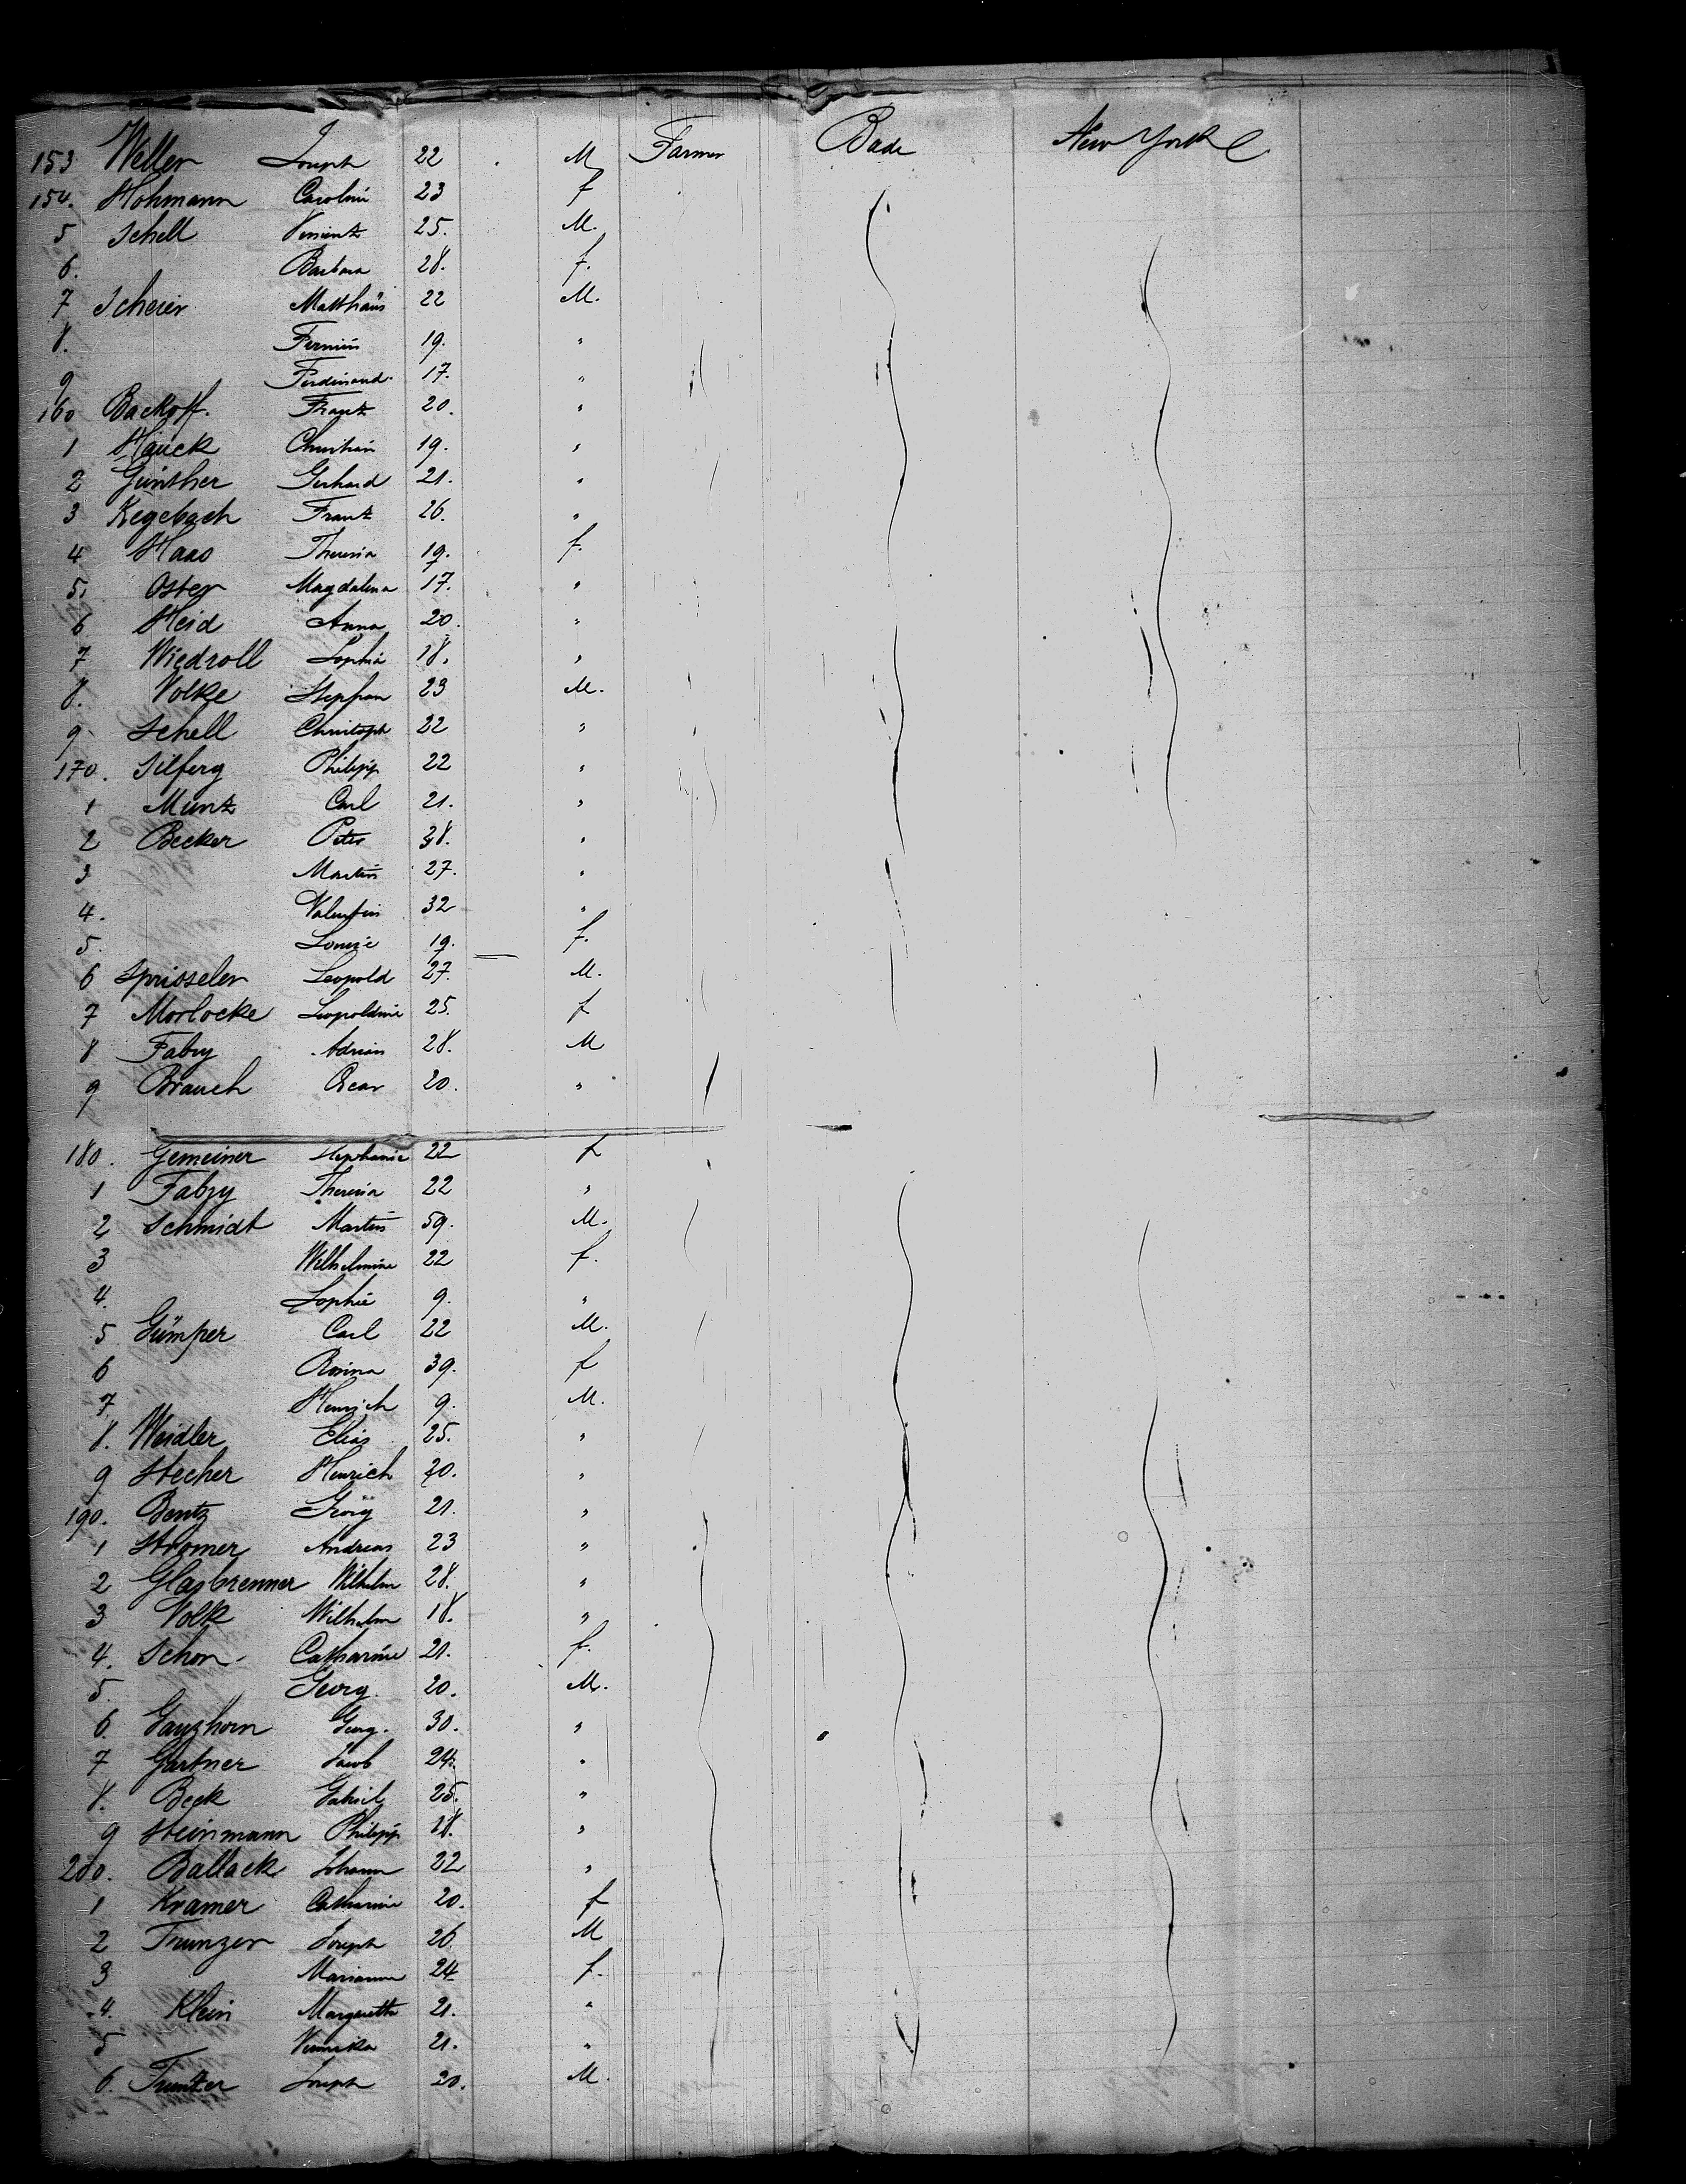 153 Weller Joseph 22 M Farmer Bade New York
154. Hohmann Caroline 23 f
5 Schell Vincentz 25. M.
6. Barbara 28. f.
7 Scheier Matthäus 22 M.
8. 19. "
9 Ferdinand 17. "
160 Backoff. Frantz 20. "
1 Hauck Christian 19. "
2 Günther Gerhard 21. "
3 Kegebach Frantz 26. "
4 Haas Theresia 19. f.
5. Oster Magdalena 17. "
6 Heid Anna 20. "
7 Wiedroll Sophia 18. "
8. Volke Stephan 23 M.
9 Schell Christoph 22 "
170. Silferg Philipp 22 "
1 Muntz Carl 21. "
2 Becker Peter 38. "
3 Martin 27. "
4. Valentin 32 "
5. Louise 19. f.
6 Sprisseler Leopold 27. M.
7 Morlocke Leopoldine 25. f
8 Fabry Adrian 28. M
9 Brauch Oscar 20. "
180. Gemeiner Stephanie 22 f
1 Fabry Theresia 22 "
2 Schmidt Martin 59. M.
3 Wilhelmine 22 f.
4. Sophie 9. "
5 Gümper Carl 22 M.
6 Rosina 39. f
7 Heinrich 9. M.
8. Weidler Elias 25. "
9 Stecher Heinrich 20. "
190. Bentz Georg 21. "
1 Stromer Andreas 23 "
2 Glasbrenner Wilhelm 28. "
3 Volk Wilhelm 18. "
4. Schon Catharine 21. f.
5. Georg. 20. M.
6. Ganzhorn Georg. 30. "
7 Gartner Jacob 24. "
8. Beck Gabriel 25. "
9 Steinmann Philipp 28. "
200. Ballack Johann 22 "
1 Kramer Catharine 20. f
2 Trunzer Joseph 26 M
3 Marianna 24 f.
4. Klein Margaretha 21. "
5 Veronika 21. "
6. Trunzer Joseph 20. M.